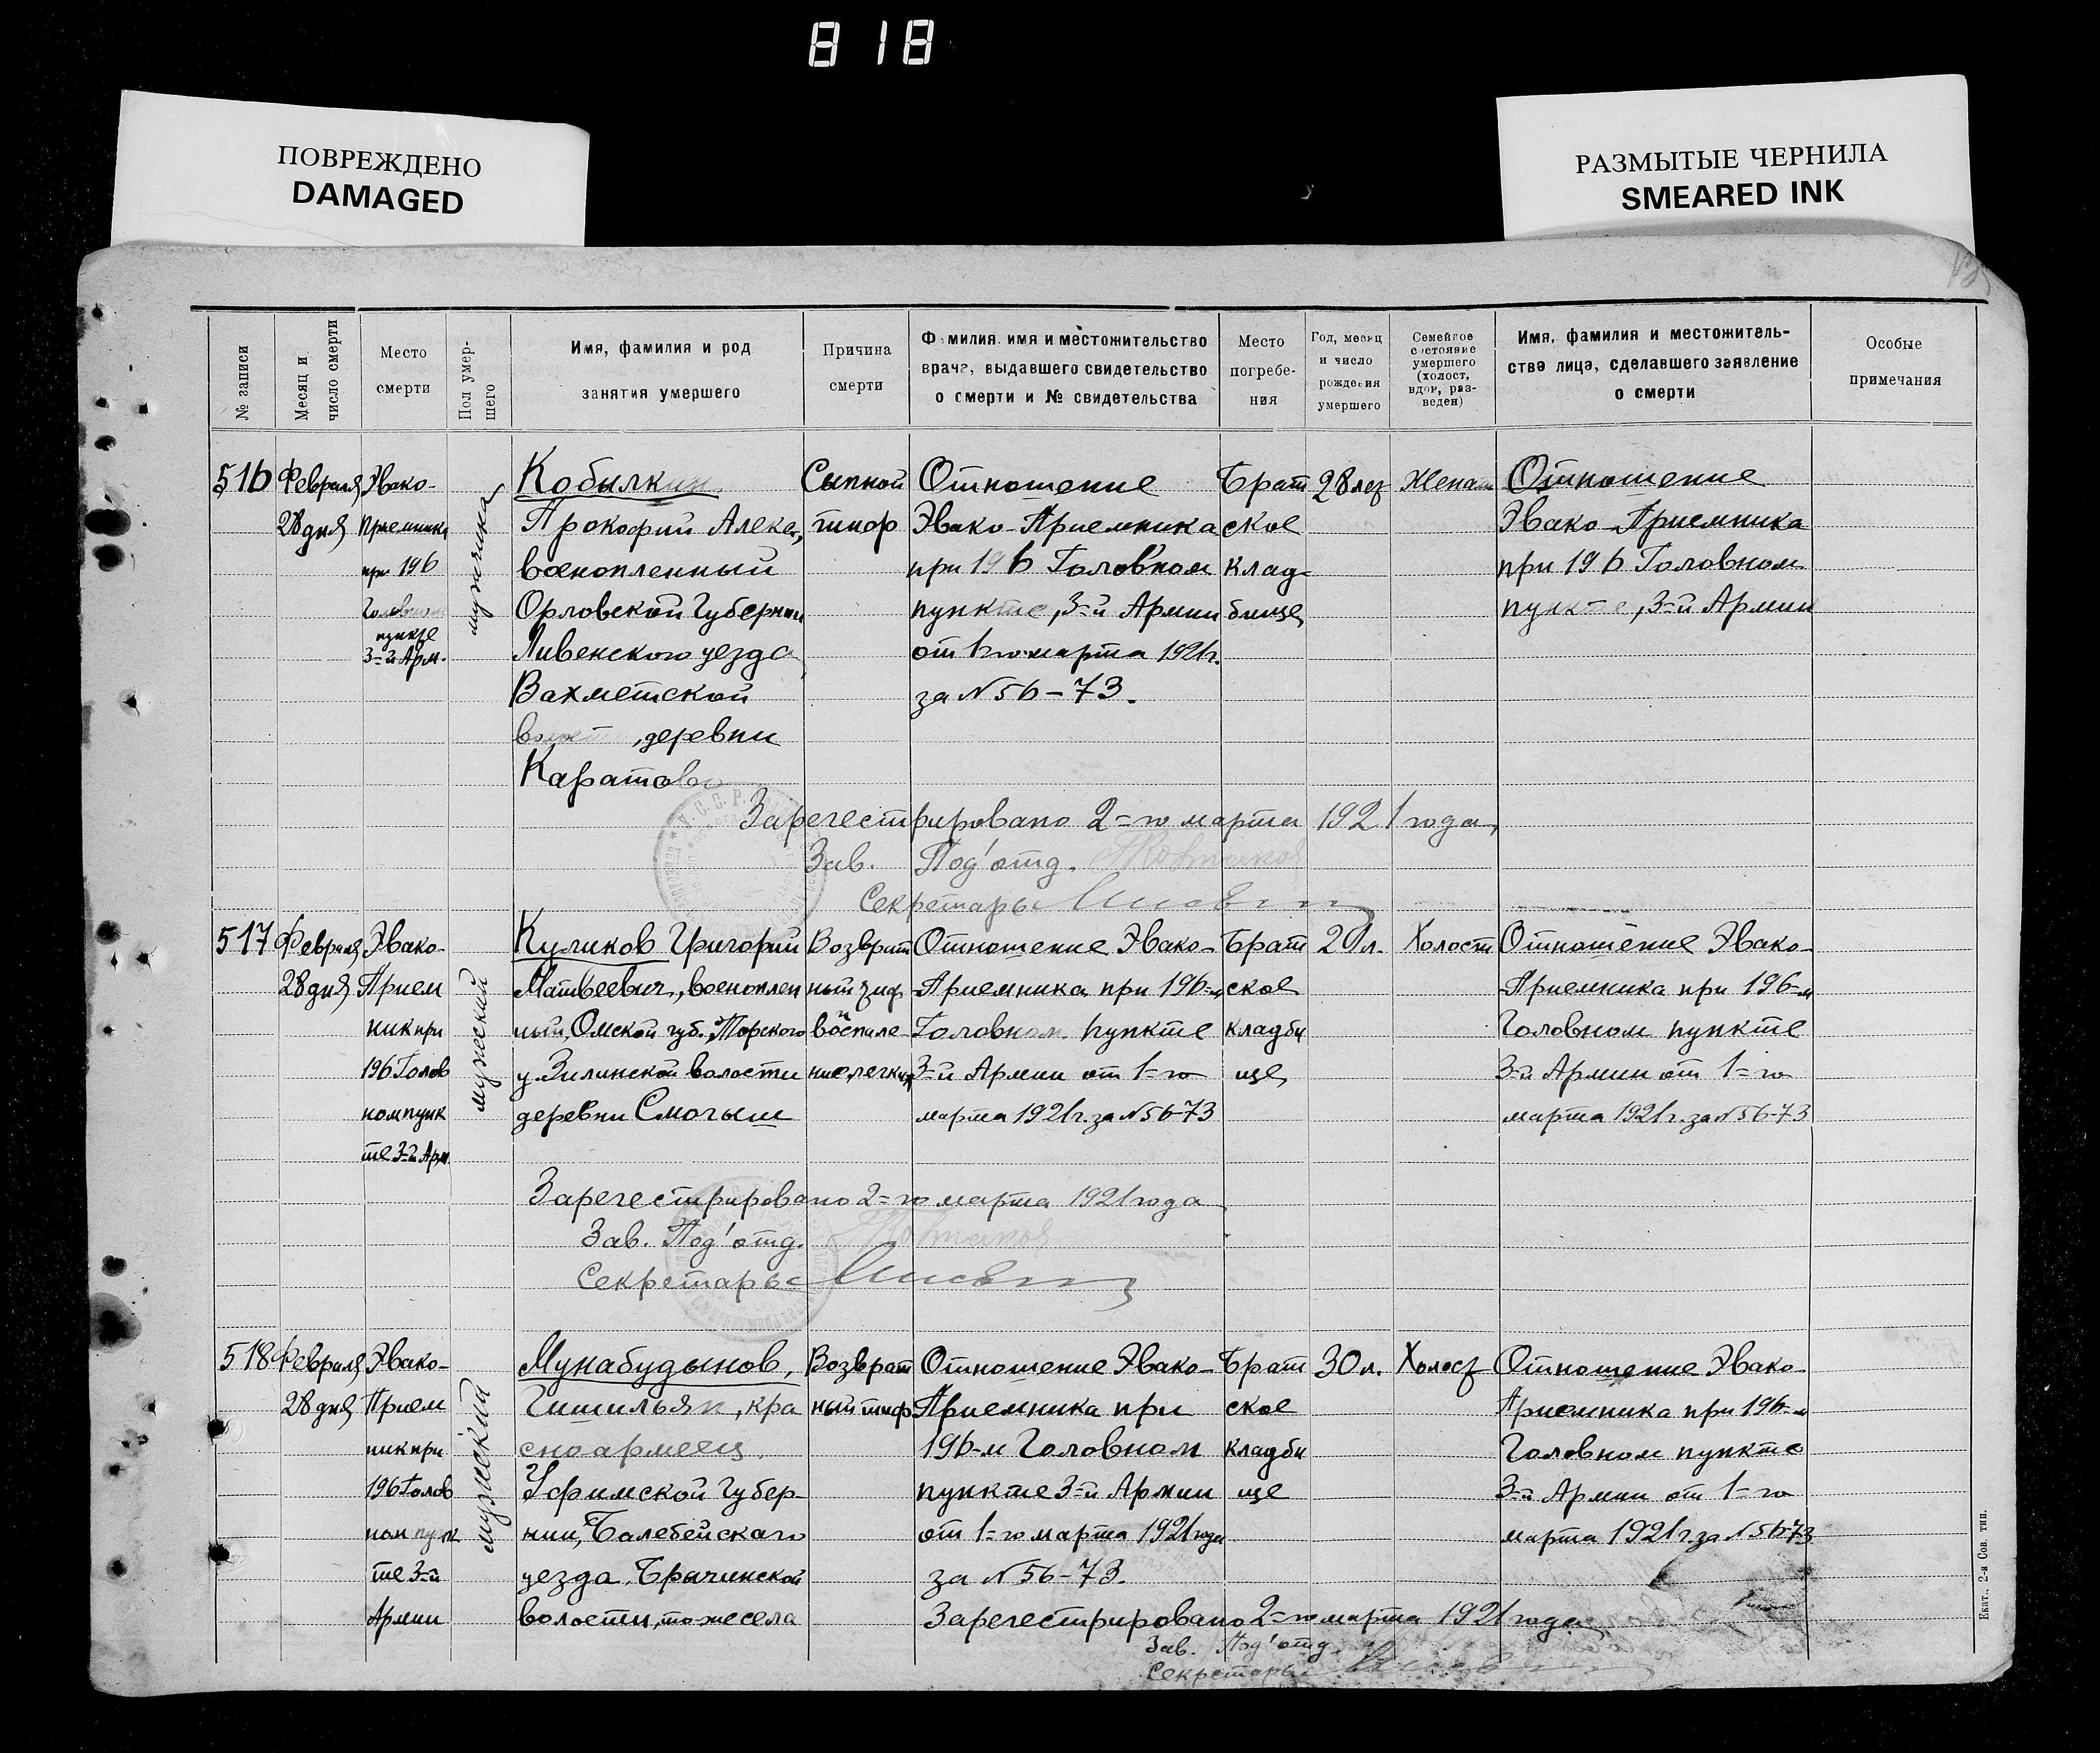 818
ПОВРЕЖДЕНО
DAMAGED
РАЗМЫТЫЕ ЧЕРНИЛА
SMEARED INK
№ записи
Месяц и
число смерти
Место
смерти
Пол умер-
шего
Имя, фамилия и род
занятия умершего
Причина
смерти
Фамилия, имя и местожительство
врача, выдавшего свидетельство
о смерти и № свидетельства
Место
погребе-
ния
Год, месяц
и число
рождения
умершего
Семейное
состояние
умершего
(холост,
вдов, раз-
веден)
Имя, фамилия и местожитель-
ства лица, сделавшего заявление
о смерти
Особые
примечания
516
Февраля
28 дня
Эвако-
Приемника
при 196
Головном
пункте
3=й Арм.
мужчина
Кобылкин
Прокофий Алекс.,
военопленный
Орловской Губернии
Ливенского уезда,
Вахметской
волости, деревни
Каратово
Сыпной
тиф
Отношение
Эвако-Приемника
при 196 Головном
пункте, 3=й Армии
от 1=го марта 1921г.
за N 56-73.
Брат
ское
клад-
бище
28 лет
Женат
Отношение
Эвако-Приемника
при 196 Головном
пункте, 3=й Армии
Зарегестрировано 2=го марта 1921 года,
Зав. Под'отд.
Секретарь
517
Февраля
28 дня
Эвако-
Прием
ник при
196 Голов
ном пунк
те 3=й Арм.
мужеский
Куликов Григорий
Матвеевич, военоплен
ный, Омской губ. Торского
у. Зилинской волости
деревни Смочыш
Возврат
ный тиф
и воспале-
ние легких
Отношение Эвако-
Приемника при 196=м
Головном пункте
3=й Армии от 1=го
марта 1921г. за N 56-73
Брат
ское
кладби
ще
20 л.
Холост
Отношение Эвако-
Приемника при 196=м
Головном пункте
3=й Армии от 1=го
марта 1921г. за N 56-73
Зарегестрировано 2=го марта 1921 года
Зав. Под'отд.
Секретарь
518
Февраля
28 дня
Эвако-
Прием
ник при
196 Голов
ном пунк
те 3=й
Армии
мужеский
Мунабудынов,
Гишильян, кра
сноармеец
Уфимской Губер-
нии, Балебейскаго
уезда, Брачинской
волости, то же села
Возврат
ный тиф
Отношение Эвако-
Приемника при
196-м Головном
пункте 3=й Армии
от 1=го марта 1921 года
за N 56-73.
Брат
ское
кладби
ще
30 л.
Холост
Отношение Эвако-
Приемника при 196=м
Головном пункте
3=й Армии от 1=го
марта 1921 г. за N 56-73
Зарегестрировано 2=го марта 1921 года
Зав. Под'отд.
Секретарь
Екат. 2-я Сов. тип.